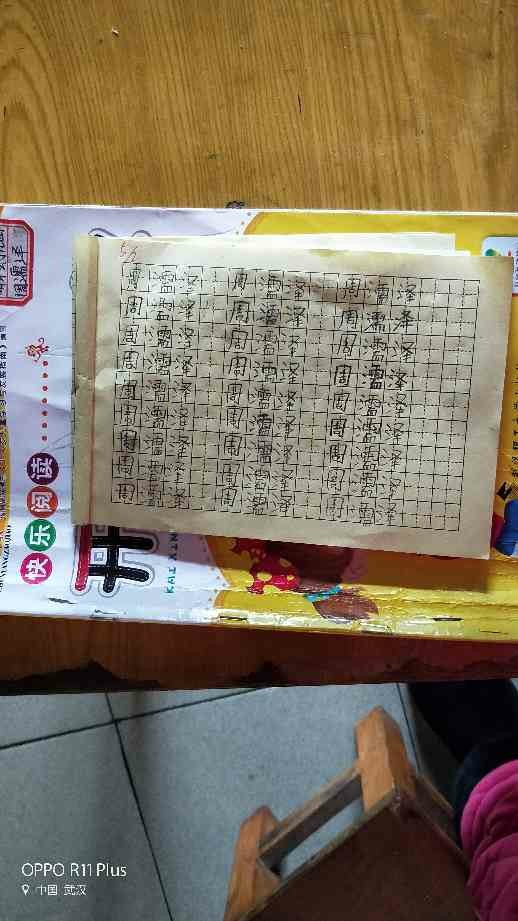 周濡泽 周濡泽 周濡泽
周濡泽 周濡泽 周濡泽
周濡泽 周濡泽 周濡泽
周濡泽 周濡泽 周濡泽
周濡泽 周濡泽 周濡泽
周濡泽 周濡泽 周濡泽
周濡泽 周濡泽 周濡泽
周濡泽 周濡泽 周濡泽
周濡泽 周濡泽 周濡泽
周濡泽
快乐阅读
OPPO R11 Plus
中国 武汉